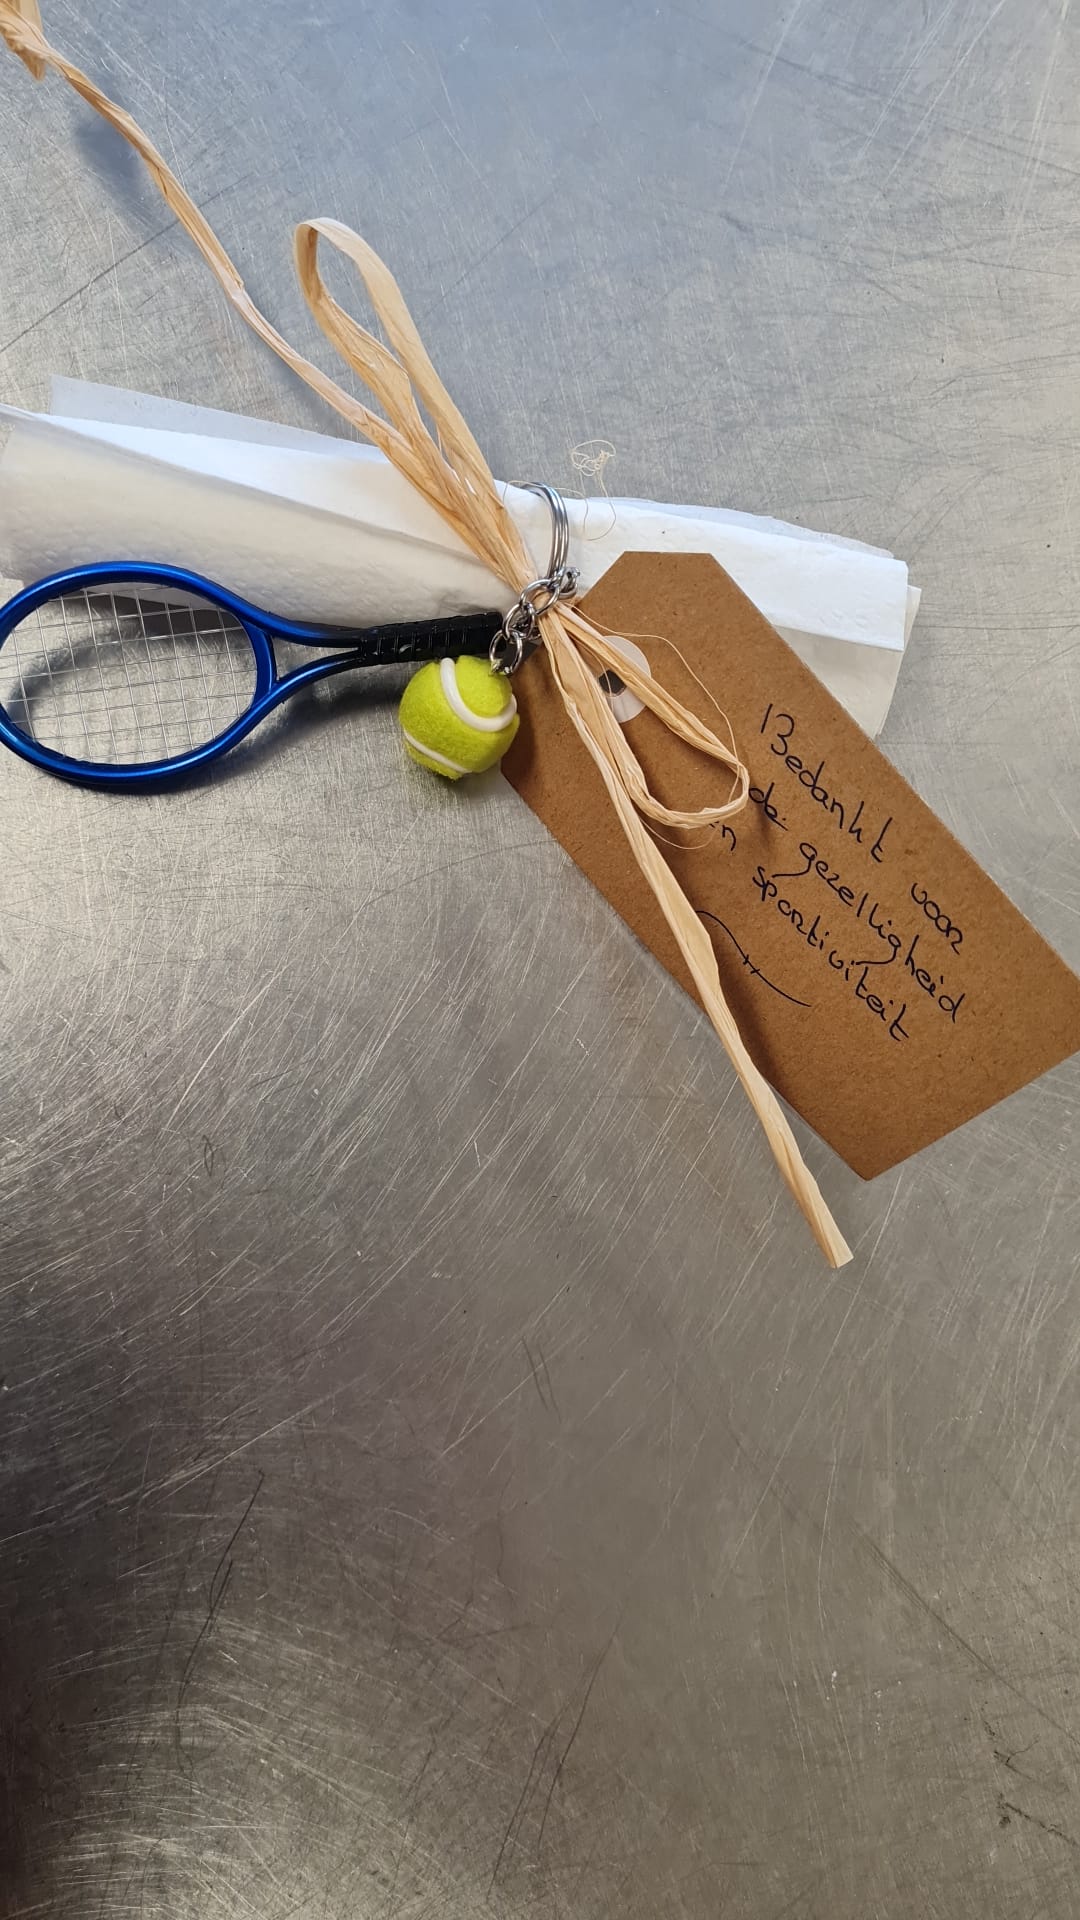 Bedankt voor
de gezelligheid
en sportiviteit